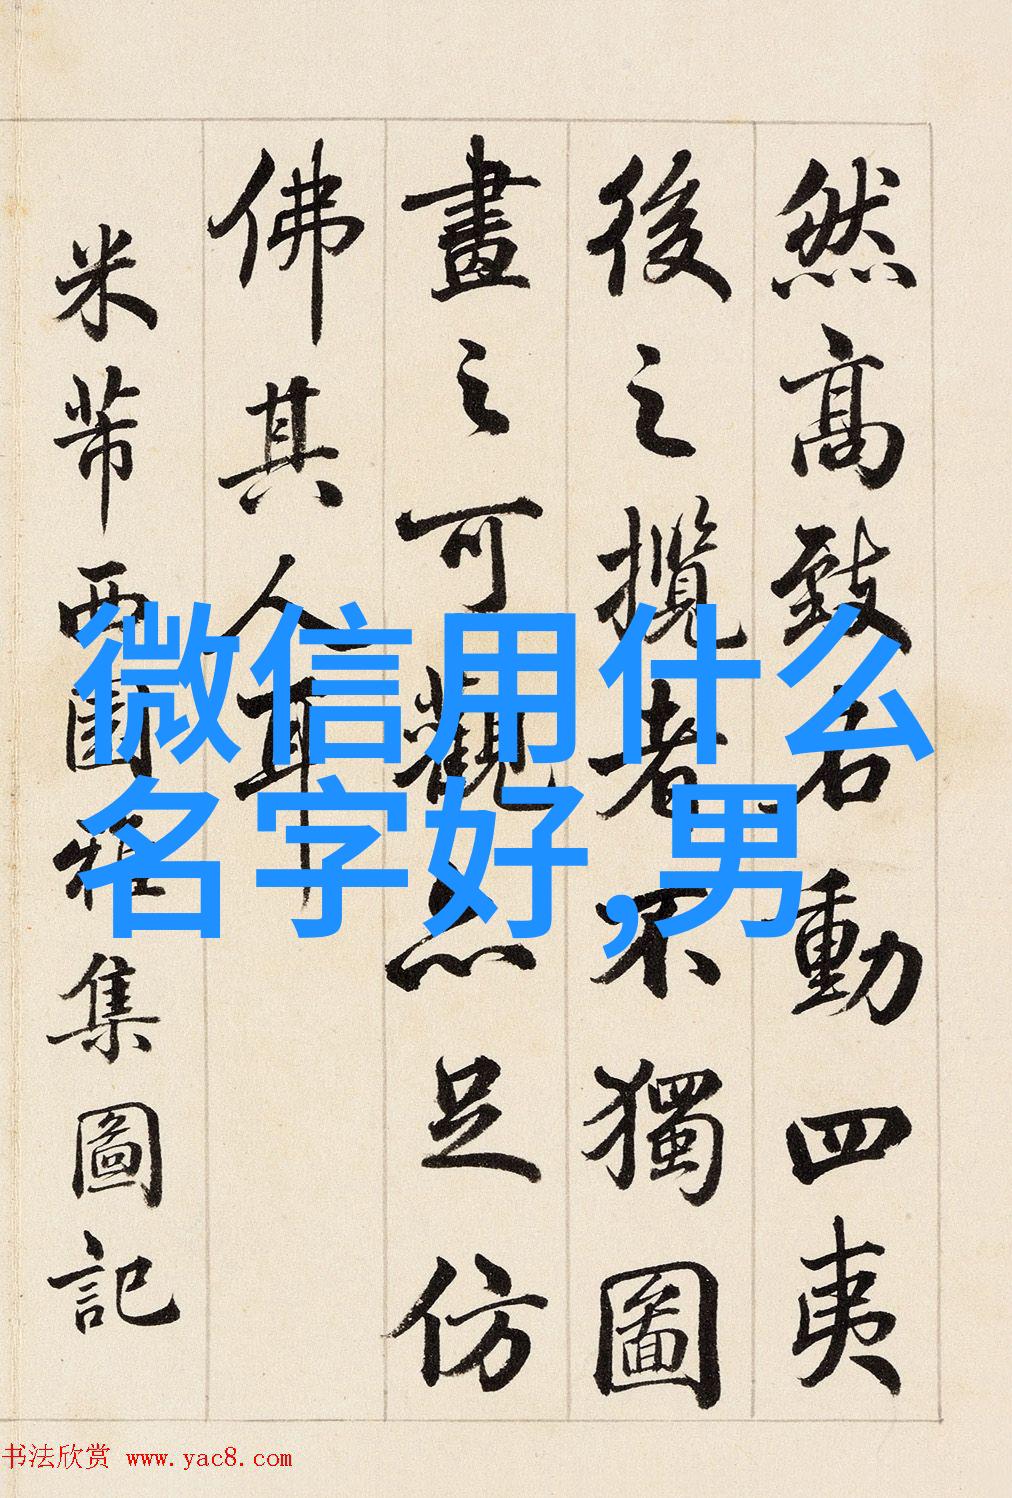 然髙致名動四夷
後之攬者不獨圖
畫之可觀亦足仿
佛其人耳
米芾西園雅集圖記
微信用什么
名字好,男
书法欣赏 www.yac8.com